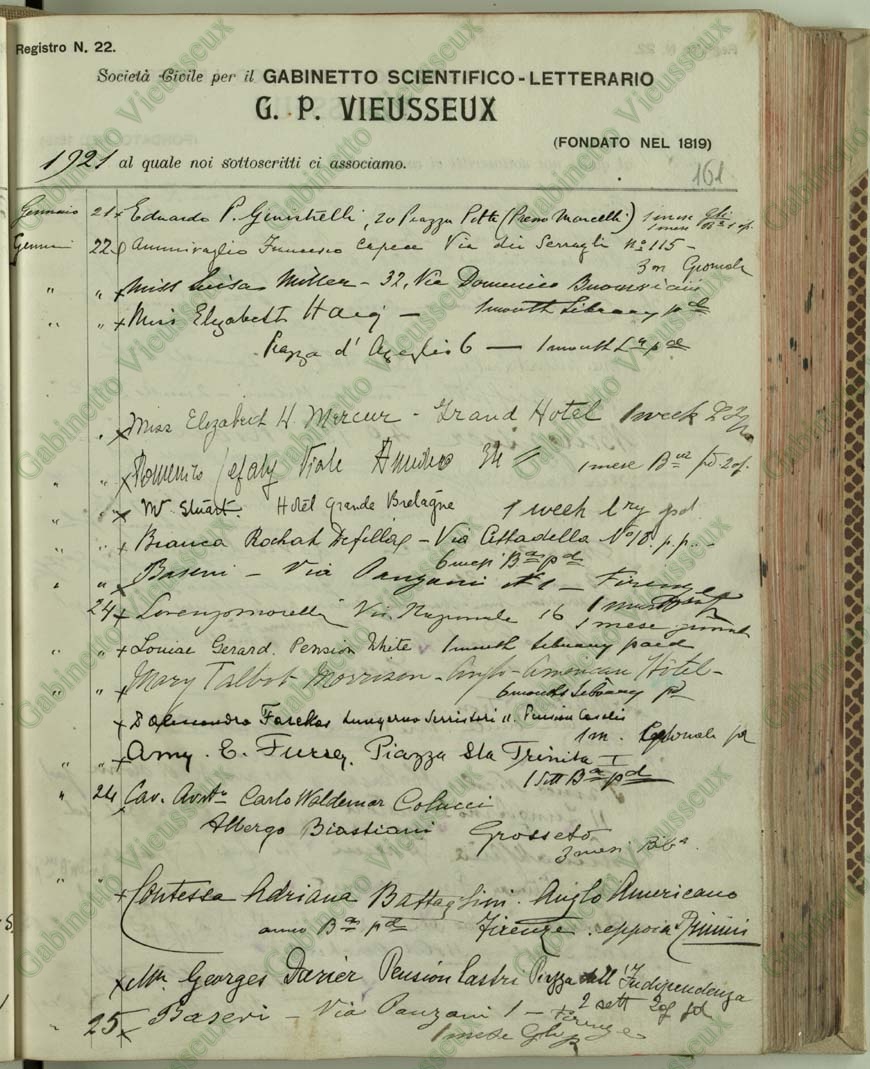 Registro N. 22.
Società Civile per il GABINETTO SCIENTIFICO-LETTERARIO
G. P. VIEUSSEUX
(FONDATO NEL 1819)
1921 al quale noi sottoscritti ci associamo.
161
Gennaio 21 x Eduardo P. Ginistrelli, 20 Piazza Pitti 1 mese
1 mese
22 Ammiraglio Francesco Capece Via dei Serragli No 115 -
3 m Giornale
" " x Miss Luisa Miller - 32, Via Domenico
" " x Miss Elizabeth Haig - 1 month Library pd
Piazza d'Azeglio 6 - 1 month pd
x Miss Elizabeth H Mercur - Grand Hotel 1 week
" " x Domenico Viale Amedeo 34 1 mese Bca pd.
" " x Mr. Stuart. Hotel Grande Bretagne 1 week Lry pd
" " x Bianca Rochat - Via Cittadella No 18. p.p. -
6 mesi Bca pd
" " x Baseri - Via Panzani No 1 - Firenze
24 x Lorenzo Morelli Via Nazionale 16 1 mese
" " x Louise Gerard. Pension White 1 month Library paid
" " x Mary Talbot Morrison - Anglo-American Hotel -
6 months Library pd
x Alessandro Farekas Lungarno Serristori 11. Pension Casalis
1 m. pd
" " x Amy. E. Fursey. Piazza Sta Trinita I
1 Sett Bca pd
" 24 Cav. Avv. Carlo Waldemar Colucci
Albergo Biastiani Grosseto
3 mesi Biba
" " x Contessa Adriana Battaglini. Anglo Americano
anno Bca pd Firenze. eppoi a Rimini
x Mr. Georges Darier Pension Lastri Piazza dell'Indipendenza
2 sett pd
25 x Baseri - Via Panzani 1 - Firenze
1 mese